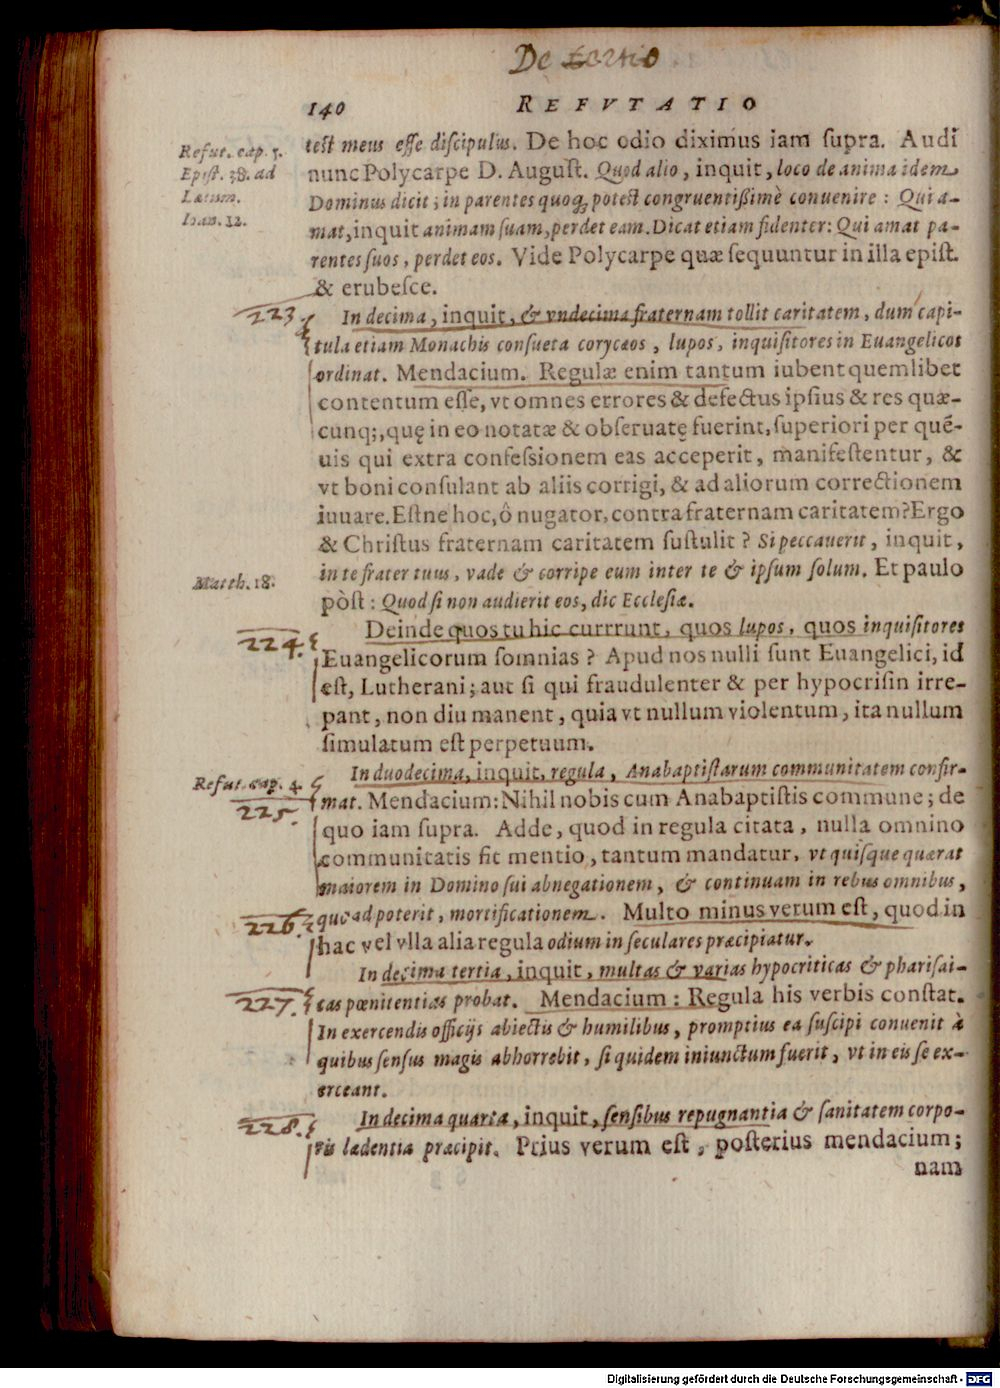 De tertio
140 REFVTATIO
Refut. cap. 5.
Epist. 38. ad
Lætum.
Ioan. 12.
test meus esse discipulus. De hoc odio diximus iam supra. Audi
nunc Polycarpe D. August. Quod alio, inquit, loco de anima idem
Dominus dicit; in parentes quoq; potest congruentißimè conuenire: Qui a-
mat, inquit animam suam, perdet eam. Dicat etiam fidenter: Qui amat pa-
rentes suos, perdet eos. Vide Polycarpe quæ sequuntur in illa epist.
& erubesce.
223
In decima, inquit, & vndecima fraternam tollit caritatem, dum capi-
tula etiam Monachis consueta corycæos, lupos, inquisitores in Euangelicos
ordinat. Mendacium. Regulæ enim tantum iubent quemlibet
contentum esse, vt omnes errores & defectus ipsius & res quæ-
cunq;, quę in eo notatæ & obseruatę fuerint, superiori per quē-
uis qui extra confessionem eas acceperit, manifestentur, &
vt boni consulant ab aliis corrigi, & ad aliorum correctionem
iuuare. Estne hoc, ô nugator, contra fraternam caritatem? Ergo
& Christus fraternam caritatem sustulit? Si peccauerit, inquit,
Matth. 18.
in te frater tuus, vade & corripe eum inter te & ipsum solum. Et paulo
pòst: Quod si non audierit eos, dic Ecclesiæ.
224.
Deinde quos tu hic currrunt, quos lupos, quos inquisitores
Euangelicorum somnias? Apud nos nulli sunt Euangelici, id
est, Lutherani; aut si qui fraudulenter & per hypocrisin irre-
pant, non diu manent, quia vt nullum violentum, ita nullum
simulatum est perpetuum.
Refut. cap. 4.
225.
In duodecima, inquit, regula, Anabaptistarum communitatem confir-
mat. Mendacium: Nihil nobis cum Anabaptistis commune; de
quo iam supra. Adde, quod in regula citata, nulla omnino
communitatis fit mentio, tantum mandatur, vt quisque quærat
maiorem in Domino sui abnegationem, & continuam in rebus omnibus,
226.
quoad poterit, mortificationem. Multo minus verum est, quod in
hac vel vlla alia regula odium in seculares præcipiatur.
In decima tertia, inquit, multas & varias hypocriticas & pharisai-
227.
cas pœnitentias probat. Mendacium: Regula his verbis constat.
In exercendis officijs abiectis & humilibus, promptius ea suscipi conuenit à
quibus sensus magis abhorrebit, si quidem iniunctum fuerit, vt in eis se ex-
erceant.
228.
In decima quarta, inquit, sensibus repugnantia & sanitatem corpo-
ris lædentia præcipit. Prius verum est, posterius mendacium;
nam
Digitalisierung gefördert durch die Deutsche Forschungsgemeinschaft - DFG